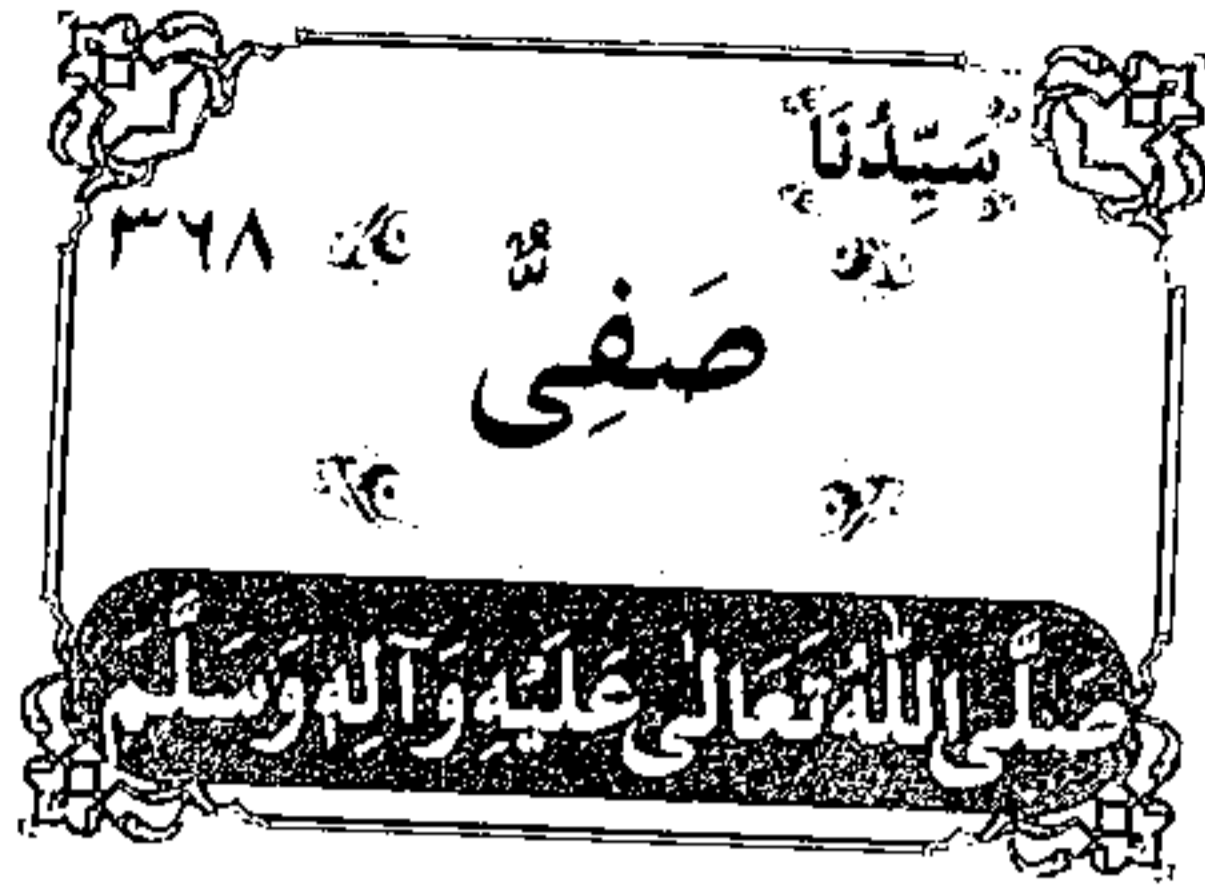 سَيِّدُنَا
٣٦٨
صَفِىٌّ
صَلَّى اللهُ تَعَالىٰ عَلَيْهِ وَآلِهٖ وَسَلَّمَ